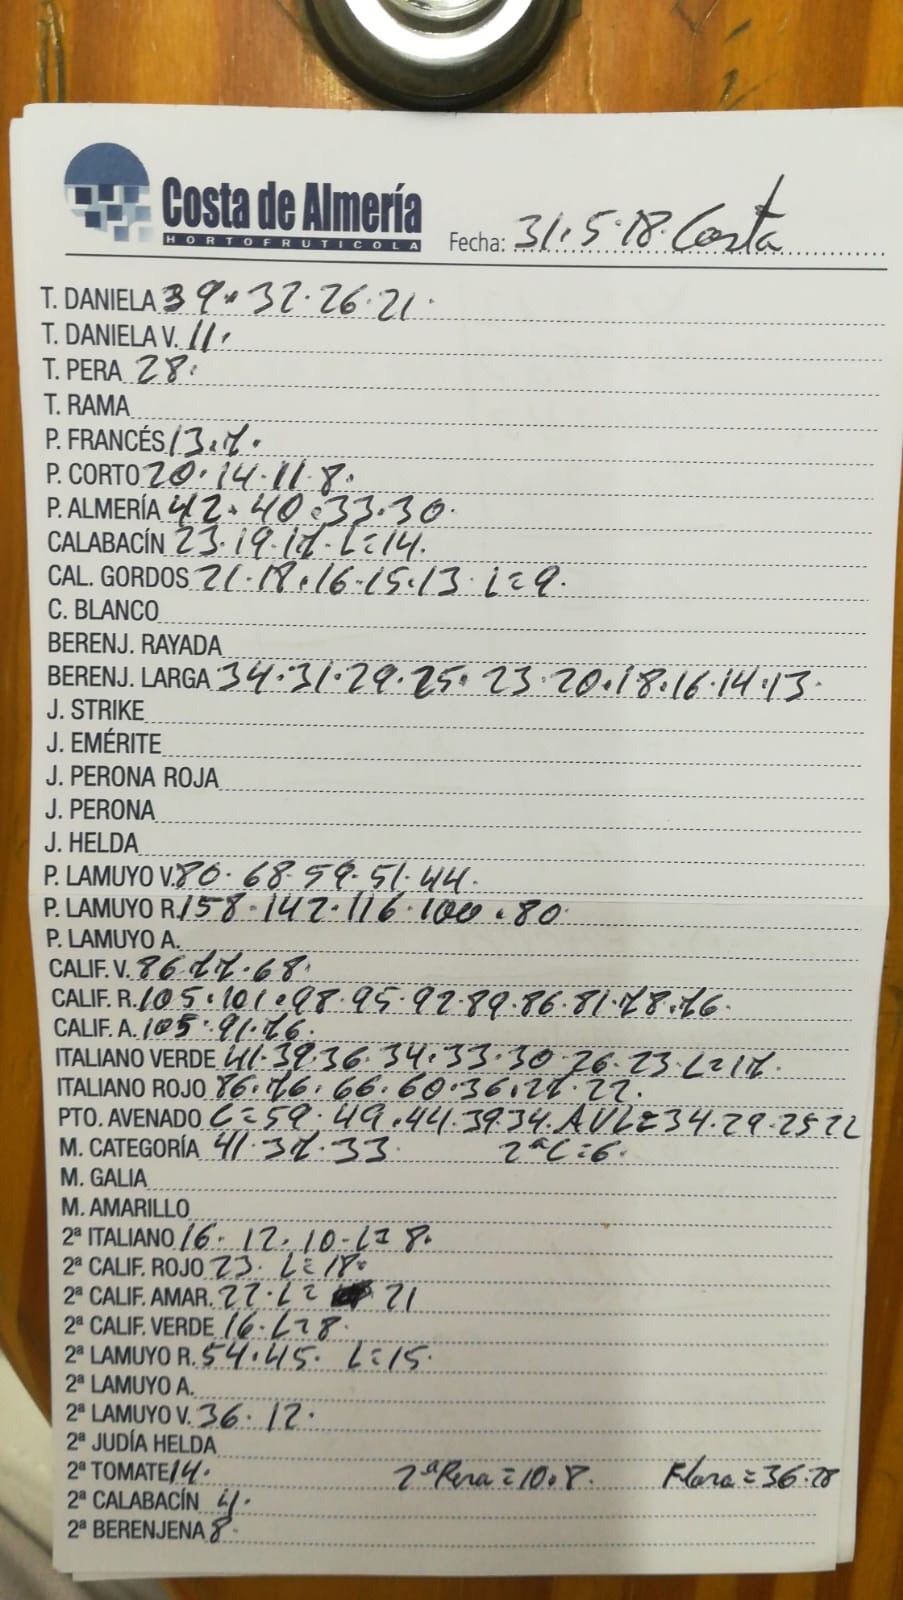 Costa de Almería
HORTOFRUTICOLA
Fecha: 31.5.18. Costa
T. DANIELA 39. 32. 26. 21.
T. DANIELA V. 11.
T. PERA 28.
T. RAMA
P. FRANCÉS 13.7.
P. CORTO 20. 14. 11. 8.
P. ALMERÍA 42. 40. 33. 30.
CALABACÍN 23. 19. 17. L=14.
CAL. GORDOS 21. 18. 16. 15. 13 L=9.
C. BLANCO
BERENJ. RAYADA
BERENJ. LARGA 34. 31. 29. 25. 23. 20. 18. 16. 14. 13.
J. STRIKE
J. EMÉRITE
J. PERONA ROJA
J. PERONA
J. HELDA
P. LAMUYO V. 80. 68. 59. 51. 44.
P. LAMUYO R. 158. 142. 116. 100. 80.
P. LAMUYO A.
CALIF. V. 86. 77. 68.
CALIF. R. 105. 101. 98. 95. 92. 89. 86. 81. 78. 76.
CALIF. A. 105. 91. 76.
ITALIANO VERDE 41. 39. 36. 34. 33. 30. 26. 23. L=17.
ITALIANO ROJO 86. 76. 66. 60. 36. 27. 22.
PTO. AVENADO C=59. 49. 44. 39. 34. AVL=34. 29. 25 22
M. CATEGORÍA 41. 37. 33. 2ªC=6.
M. GALIA
M. AMARILLO
2ª ITALIANO 16. 12. 10. L=8.
2ª CALIF. ROJO 23. L=18.
2ª CALIF. AMAR. 22. L= 21
2ª CALIF. VERDE 16. L=8.
2ª LAMUYO R. 54. 45. L=15.
2ª LAMUYO A.
2ª LAMUYO V. 36. 12.
2ª JUDÍA HELDA
2ª TOMATE 14. 2ªPera=10.8. Flora=36.28
2ª CALABACÍN 4.
2ª BERENJENA 8.